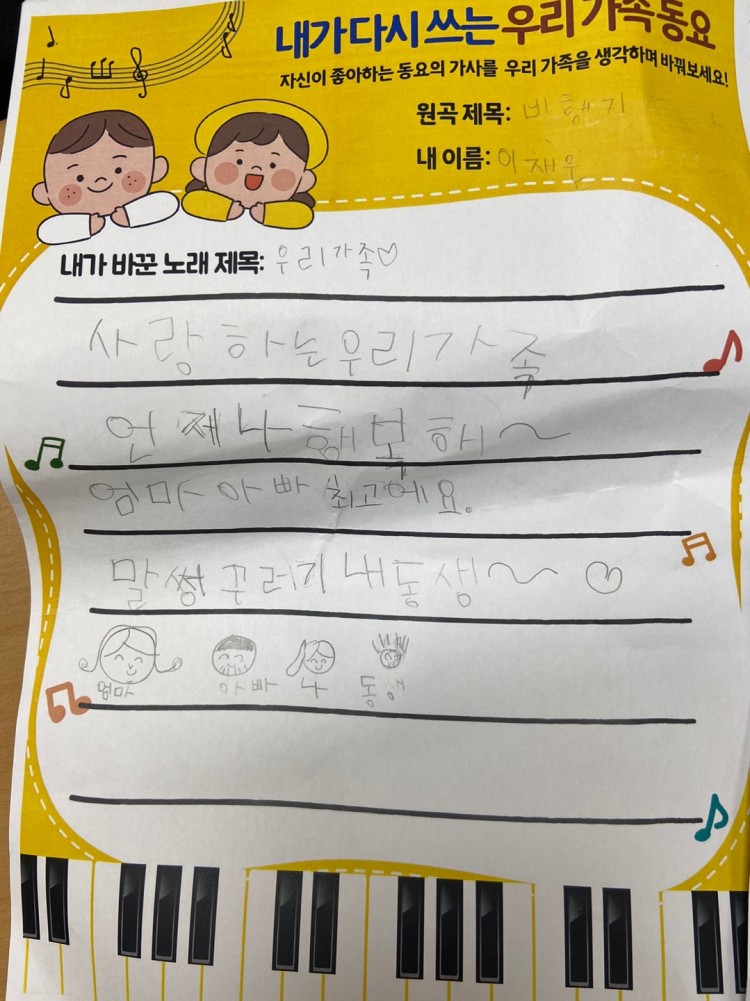 내가 다시 쓰는 우리 가족 동요
자신이 좋아하는 동요의 가사를 우리 가족을 생각하며 바꿔보세요!
원곡 제목: 비행기
내 이름: 이채우
내가 바꾼 노래 제목: 우리가족♡
사랑하는우리가족
언제나행복해~
엄마아빠최고에요.
말썽꾸러기내동생~ ♡
엄마 아빠 나 동생